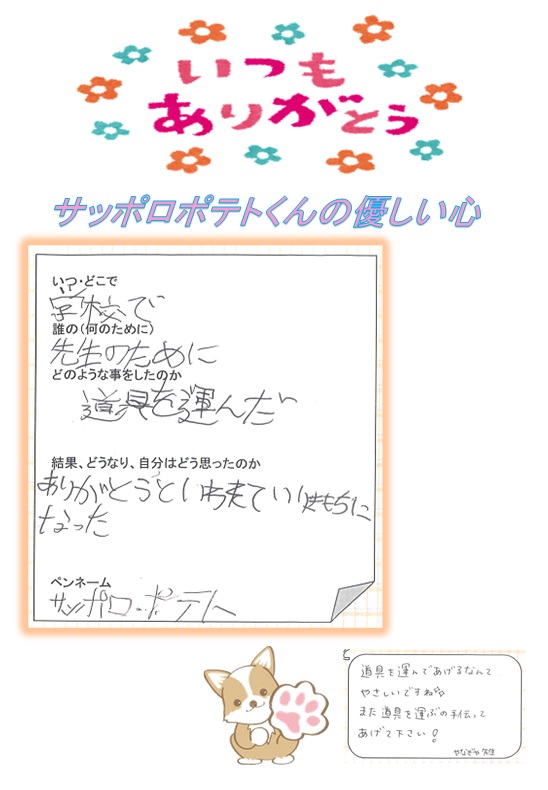 いつも
ありがとう
サッポロポテトくんの優しい心
いつ・どこで
学校で
誰の（何のために）
先生のために
どのような事をしたのか
道具を運んだ
結果、どうなり、自分はどう思ったのか
ありがとうといわれていいきもちに
なった
ペンネーム
サッポロ・ポテト
道具を運んであげるなんて
やさしいですね
また道具を運ぶの手伝って
あげて下さい！
先生